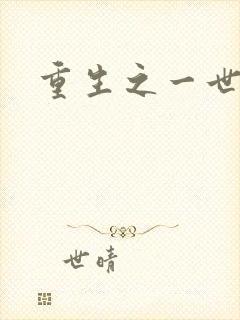 重生之一世
世晴